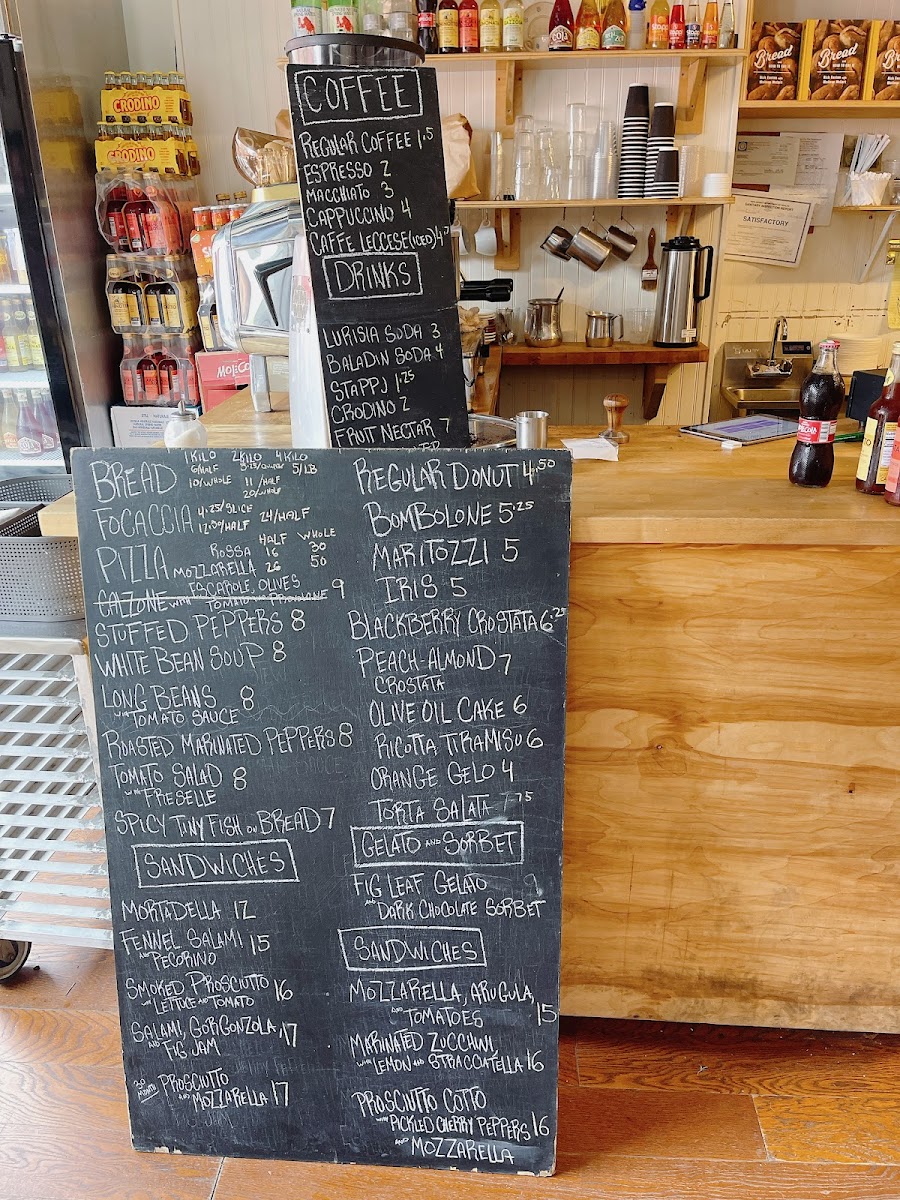 CRODINO
CRODINO
COFFEE
REGULAR COFFEE 1.5
ESPRESSO 2
MACCHIATO 3
CAPPUCCINO 4
CAFFE LECCESE (ICED) 4
DRINKS
LURISIA SODA 3
BALADIN SODA 4
STAPPJ 1.25
CRODINO 2
FRUIT NECTAR 7
Bread
Bread
SATISFACTORY
MOLECOLA
BREAD
1 KILO 2 KILO 4 KILO
6/HALF 5/LB
10/WHOLE 11/HALF
20/WHOLE
FOCACCIA 4.25/SLICE
12.50/HALF 24/HALF
HALF WHOLE
PIZZA ROSSA 16 30
MOZZARELLA 26 50
CALZONE WITH ESCAROLE, OLIVES 9
TOMATO AND PROVOLONE
STUFFED PEPPERS 8
WHITE BEAN SOUP 8
LONG BEANS 8
WITH TOMATO SAUCE
ROASTED MARINATED PEPPERS 8
TOMATO SALAD 8
WITH FRESELLE
SPICY TINY FISH ON BREAD 7
SANDWICHES
MORTADELLA 12
FENNEL SALAMI 15
AND PECORINO
SMOKED PROSCIUTTO 16
W LETTUCE AND TOMATO
SALAMI, GORGONZOLA 17
AND FIG JAM
30 MONTH PROSCIUTTO
AND MOZZARELLA 17
REGULAR DONUT 4.50
BOMBOLONE 5.25
MARITOZZI 5
IRIS 5
BLACKBERRY CROSTATA 6.25
PEACH-ALMOND 7
CROSTATA
OLIVE OIL CAKE 6
RICOTTA TIRAMISU 6
ORANGE GELO 4
TORTA SALATA 7.75
GELATO AND SORBET
FIG LEAF GELATO 9
AND DARK CHOCOLATE SORBET
SANDWICHES
MOZZARELLA, ARUGULA,
AND TOMATOES 15
MARINATED ZUCCHINI
WITH LEMON AND STRACCIATELLA 16
PROSCIUTTO COTTO
WITH PICKLED CHERRY PEPPERS 16
AND MOZZARELLA